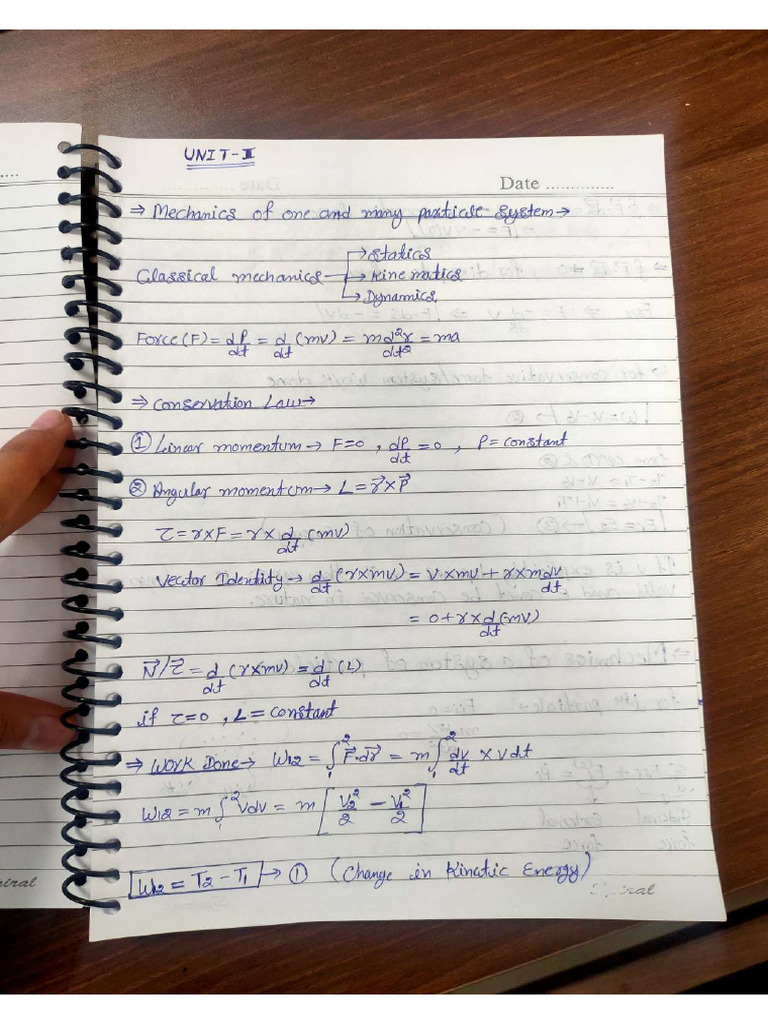 UNIT-II
Date ..............
⇒ Mechanics of one and many particle system →
→ Statics
Classical mechanics → Kinematics
→ Dynamics
Force (F) = dP/dt = d/dt (mv) = m d²r/dt² = ma
⇒ Conservation Law →
① Linear momentum → F=0 , dP/dt = 0 , P = constant
② Angular momentum → L = r⃗ × P⃗
τ = r×F = r × d/dt (mv)
Vector Identity → d/dt (r×mv) = v×mv + r×m dv/dt
= 0 + r × d/dt (mv)
N⃗/τ⃗ = d/dt (r×mv) = d/dt (L)
if τ=0 , L = constant
⇒ Work Done → W₁₂ = ∫₁² F⃗.dr⃗ = m ∫₁² dv/dt × v dt
W₁₂ = m ∫₁² v dv = m [ v₂²/2 − v₁²/2 ]
W₁₂ = T₂ − T₁ → ① (Change in Kinatic Energy)